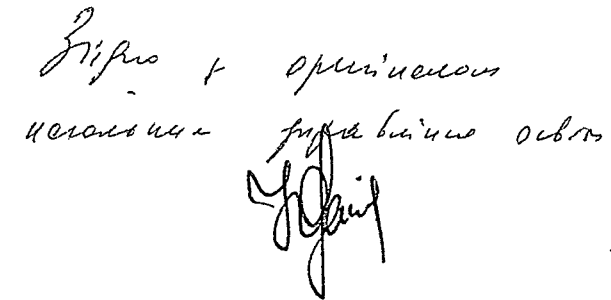 Згідно з оригіналом
начальник управління освіти